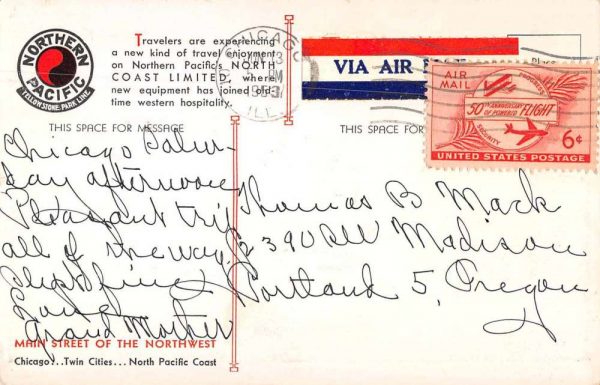 NORTHERN
PACIFIC
YELLOWSTONE PARK LINE
Travelers are experiencing
a new kind of travel enjoyment
on Northern Pacific's NORTH
COAST LIMITED, where
new equipment has joined old-
time western hospitality.
CHICAGO
PM
ILL.
VIA AIR
AIR
MAIL
PROGRESS
50TH ANNIVERSARY
OF POWERED FLIGHT
SECURITY
6¢
UNITED STATES POSTAGE
THIS SPACE FOR MESSAGE
THIS SPACE FO
Chicago Satur-
day afternoon
Pleasant trip
all of the way.
Love
Grand Mother
Thomas B Mack
2390 SW Madison
Portland 5, Oregon
MAIN STREET OF THE NORTHWEST
Chicago...Twin Cities...North Pacific Coast